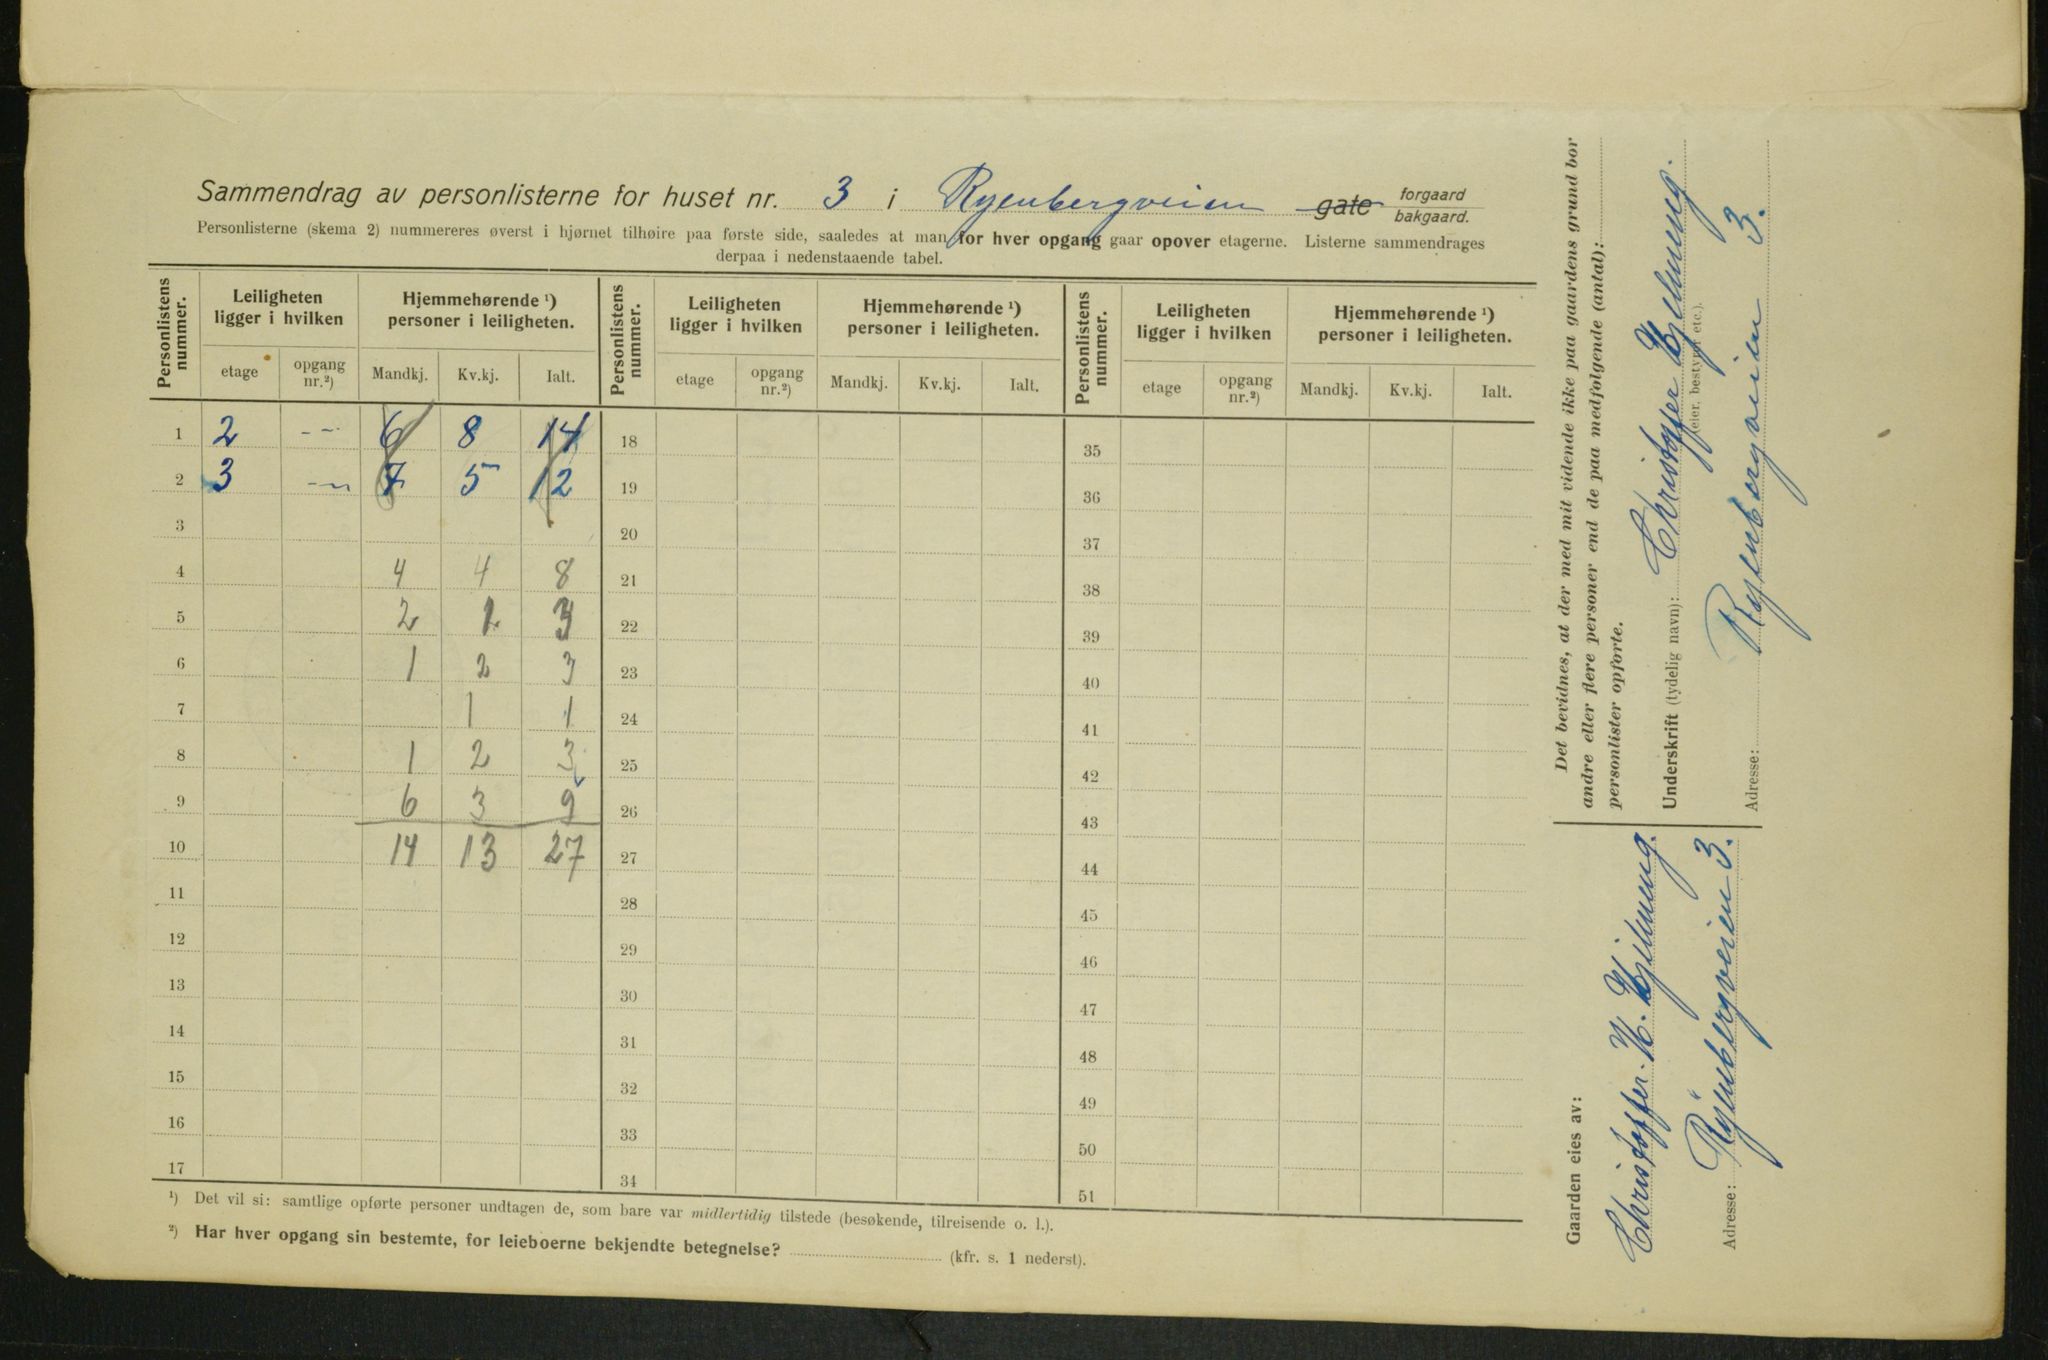 Sammendrag av personlisterne for huset nr. 3 i Ryenbergveien gate forgaard bakgaard.
Personlisterne (skema 2) nummereres øverst i hjørnet tilhøire paa første side, saaledes at man for hver opgang gaar opover etagerne. Listerne sammendrages
derpaa i nedenstaaende tabel.
Personlistens nummer. Leiligheten ligger i hvilken Hjemmehørende ¹) personer i leiligheten. Personlistens nummer. Leiligheten ligger i hvilken Hjemmehørende ¹) personer i leiligheten. Personlistens nummer. Leiligheten ligger i hvilken Hjemmehørende ¹) personer i leiligheten.
etage opgang nr.²) Mandkj. Kv.kj. Ialt. etage opgang nr.²) Mandkj. Kv.kj. Ialt. etage opgang nr.²) Mandkj. Kv.kj. Ialt.
1 2 -- 6 8 14 18 35
2 3 -- 7 5 12 19 36
3 20 37
4 4 4 8 21 38
5 2 1 3 22 39
6 1 2 3 23 40
7 1 1 24 41
8 1 2 3 25 42
9 6 3 9 26 43
10 14 13 27 27 44
11 28 45
12 29 46
13 30 47
14 31 48
15 32 49
16 33 50
17 34 51
¹) Det vil si: samtlige opførte personer undtagen de, som bare var midlertidig tilstede (besøkende, tilreisende o. l.).
²) Har hver opgang sin bestemte, for leieboerne bekjendte betegnelse? (kfr. s. 1 nederst).
Det bevidnes, at der med mit vidende ikke paa gaardens grund bor
andre eller flere personer end de paa medfølgende (antal):
personlister opførte.
Underskrift (tydelig navn): Christoffer Hjelmeng.
(eier, bestyrer etc.).
Adresse: Ryenbergveien 3.
Gaarden eies av:
Christoffer. N. Hjelmeng.
Adresse: Ryenbergveien 3.